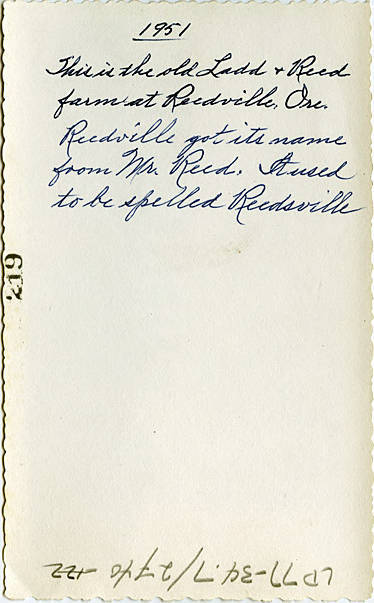 1951
This is the old Ladd + Reed
farm at Reedville, Ore.
Reedville got its name
from Mr. Reed. It used
to be spelled Reedsville
219
LP77-34.7/2740